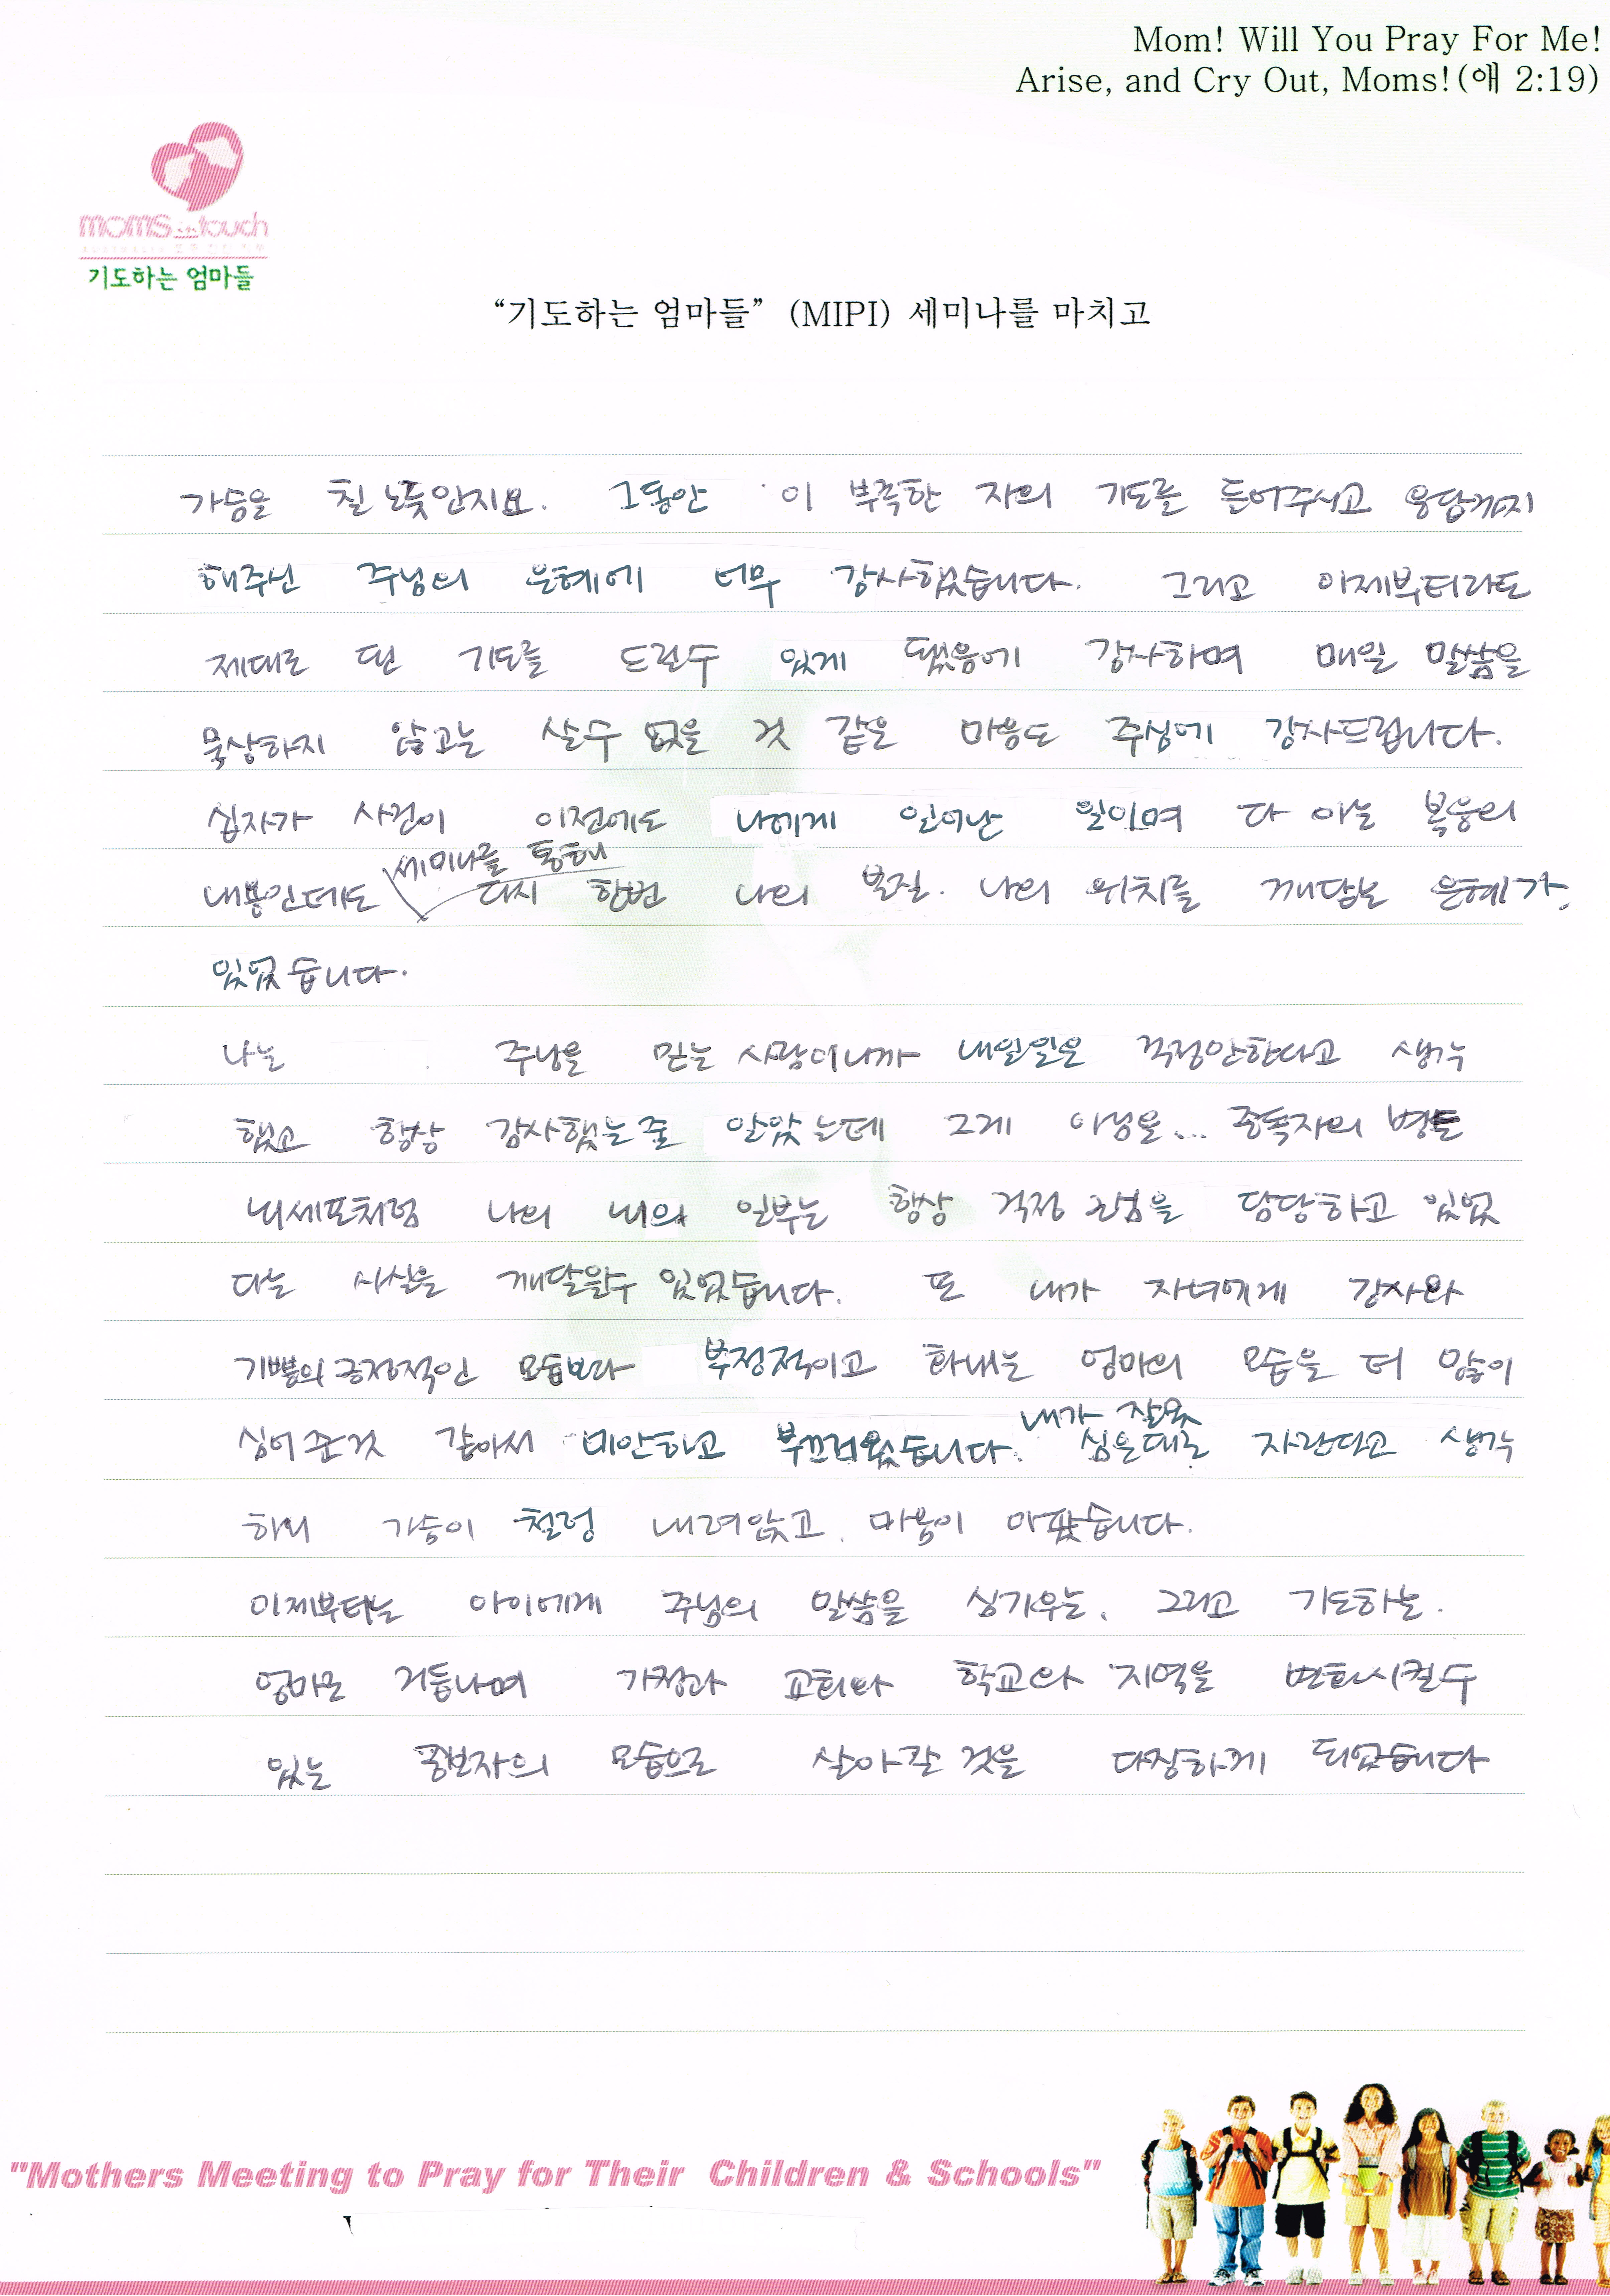 Mom! Will You Pray For Me!
Arise, and Cry Out, Moms!(애 2:19)
moms in touch
기도하는 엄마들
“기도하는 엄마들” (MIPI) 세미나를 마치고
가슴을 칠 노릇인지요. 그동안 이 부족한 자의 기도를 들어주시고 응답까지
해주신 주님의 은혜에 너무 감사했습니다. 그리고 이제부터라도
제대로 된 기도를 드릴수 있게 됐음에 감사하며 매일 말씀을
묵상하지 않고는 살수 없을 것 같은 마음도 주심에 감사드립니다.
십자가 사건이 이전에도 나에게 일어난 일이며 다 아는 복음의
세미나를 통해
내용인데도 다시 한번 나의 본질. 나의 위치를 깨닫는 은혜가
있었습니다.
나는 주님을 믿는 사람이니까 내일일은 걱정안한다고 생각
했고 항상 감사했는줄 알았는데 그게 아님을... 중독자의 병든
뇌세포처럼 나의 뇌의 일부는 항상 걱정 근심을 담당하고 있었
다는 사실을 깨달을수 있었습니다. 또 내가 자녀에게 감사와
기쁨의 긍정적인 모습보다 부정적이고 화내는 엄마의 모습을 더 많이
내가 잘못
심어준것 같아서 미안하고 부끄러웠습니다. 심은대로 자란다고 생각
하니 가슴이 철렁 내려앉고, 마음이 아팠습니다.
이제부터는 아이에게 주님의 말씀을 심기우는, 그리고 기도하는.
엄마로 거듭나며 가정과 교회와 학교와 지역을 변화시킬수
있는 중보자의 모습으로 살아갈 것을 다짐하게 되었습니다
"Mothers Meeting to Pray for Their Children & Schools"